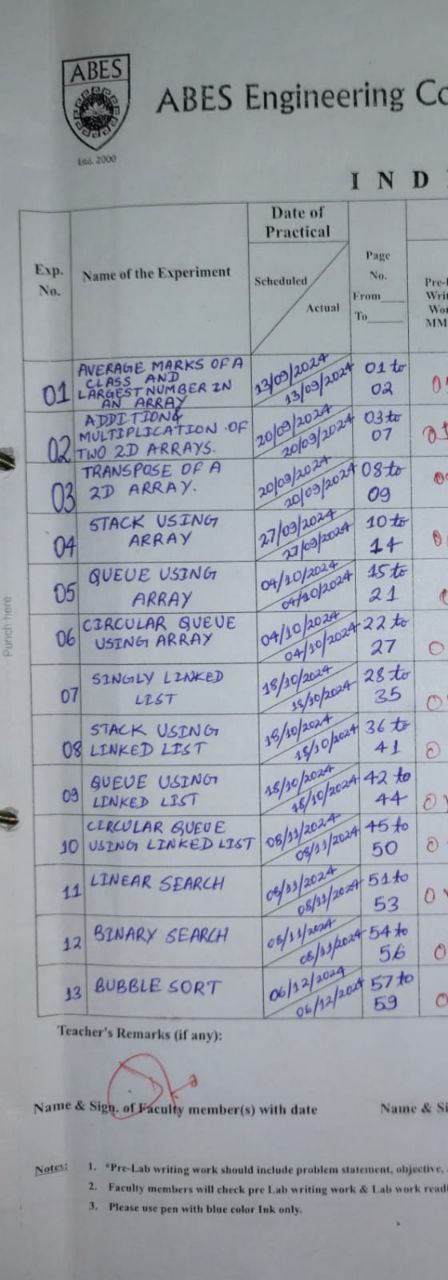 ABES
Estd. 2000
ABES Engineering Co
I N D
Exp. No.
Name of the Experiment
Date of Practical
Scheduled
Actual
Page No.
From
To
Pre-
Wri
Wo
MM
01 AVERAGE MARKS OF A CLASS AND LARGEST NUMBER IN AN ARRAY 13/09/2024 13/09/2024 01 to 02
02 ADDITION & MULTIPLICATION OF TWO 2D ARRAYS. 20/09/2024 20/09/2024 03 to 07
03 TRANSPOSE OF A 2D ARRAY. 20/09/2024 20/09/2024 08 to 09
04 STACK USING ARRAY 27/09/2024 27/09/2024 10 to 14
05 QUEUE USING ARRAY 04/10/2024 04/10/2024 15 to 21
06 CIRCULAR QUEUE USING ARRAY 04/10/2024 04/10/2024 22 to 27
07 SINGLY LINKED LIST 18/10/2024 18/10/2024 28 to 35
08 STACK USING LINKED LIST 18/10/2024 18/10/2024 36 to 41
09 QUEUE USING LINKED LIST 18/10/2024 18/10/2024 42 to 44
10 CIRCULAR QUEUE USING LINKED LIST 08/11/2024 08/11/2024 45 to 50
11 LINEAR SEARCH 08/11/2024 08/11/2024 51 to 53
12 BINARY SEARCH 08/11/2024 08/11/2024 54 to 56
13 BUBBLE SORT 06/12/2024 06/12/2024 57 to 59
Punch here
Teacher's Remarks (if any):
Name & Sign. of Faculty member(s) with date
Name & Si
Notes:
1. *Pre-Lab writing work should include problem statement, objective,
2. Faculty members will check pre Lab writing work & Lab work readi
3. Please use pen with blue color Ink only.